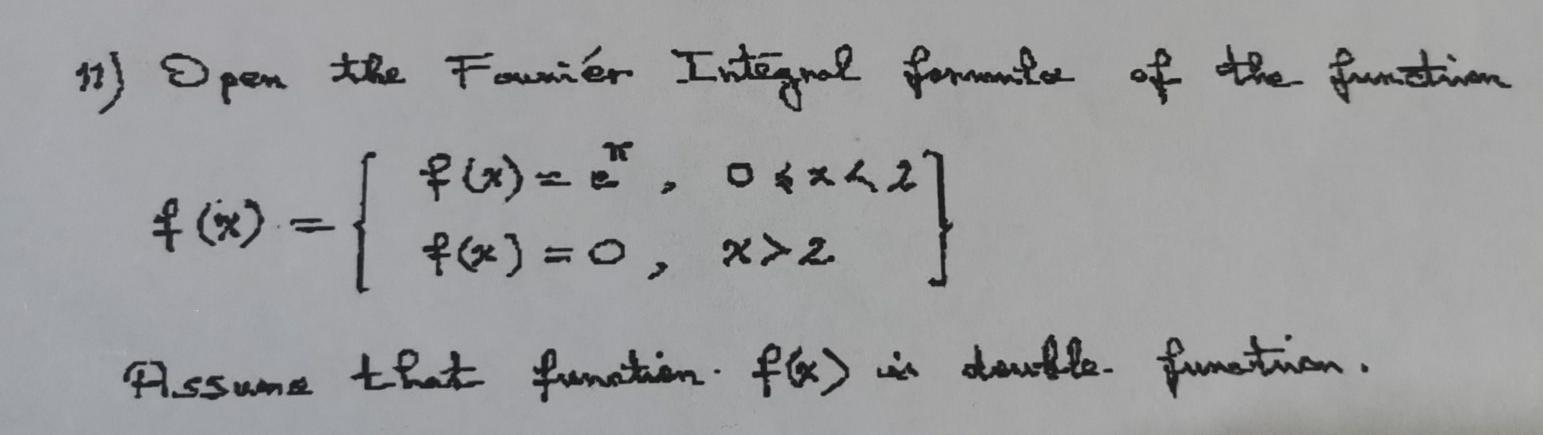 11) Open the Fourıér Intēgral formula of the function
f(x) = { f(x) = e^x , 0 < x < 2
f(x) = 0 , x > 2 }
Assume that function. f(x) is double function.